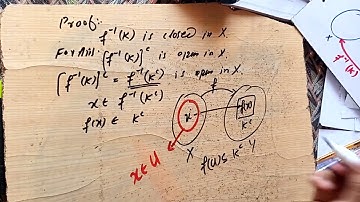 Proof:
f⁻¹(K) is closed in X.
For this [f⁻¹(K)]ᶜ is open in X.
[f⁻¹(K)]ᶜ = f⁻¹(Kᶜ) is open in X.
x ∈ f⁻¹(Kᶜ)
f(x) ∈ Kᶜ
f
x
f(x)
Kᶜ
X
Y
x ∈ U
f(U) ⊆ Kᶜ
x
f⁻¹(K)